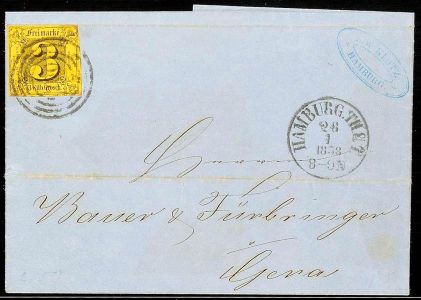 Freimarke
3
Silb. Grosch.
HAMBURG
HAMBURG. TH.&T.
26
1
1858
8-9N
Herren
Bauer & Fürbringer
Gera